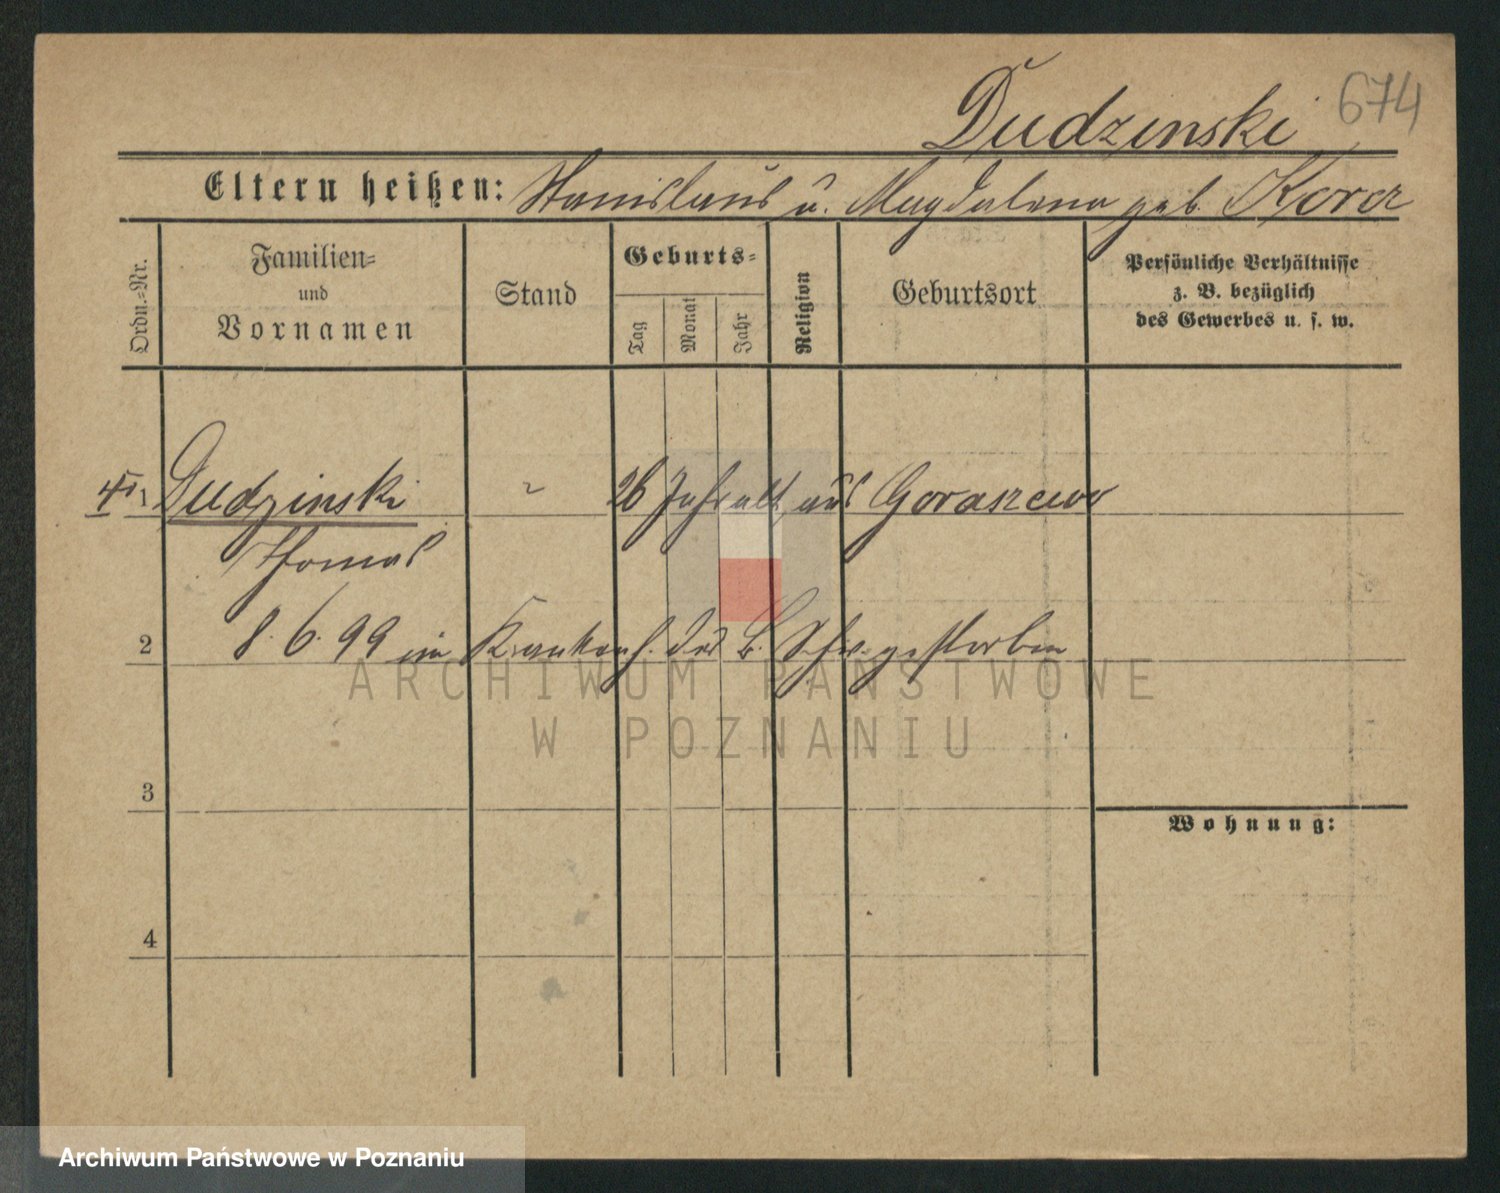 Dudzinski 674
Eltern heißen: Stanislaus u. Magdalena geb.
Ordn.=Nr.
Familien=
und
Vornamen
Stand
Geburts=
Tag
Monat
Jahr
Religion
Geburtsort
Persönliche Verhältnisse
z. B. bezüglich
des Gewerbes u. s. w.
1 Dudzinski 26 Jahr alt aus Goraszewo
Thomas
2 8. 6. 99 im Krankenh. der b. Schw. gestorben
ARCHIWUM PAŃSTWOWE
W POZNANIU
3
Wohnung:
4
Archiwum Państwowe w Poznaniu